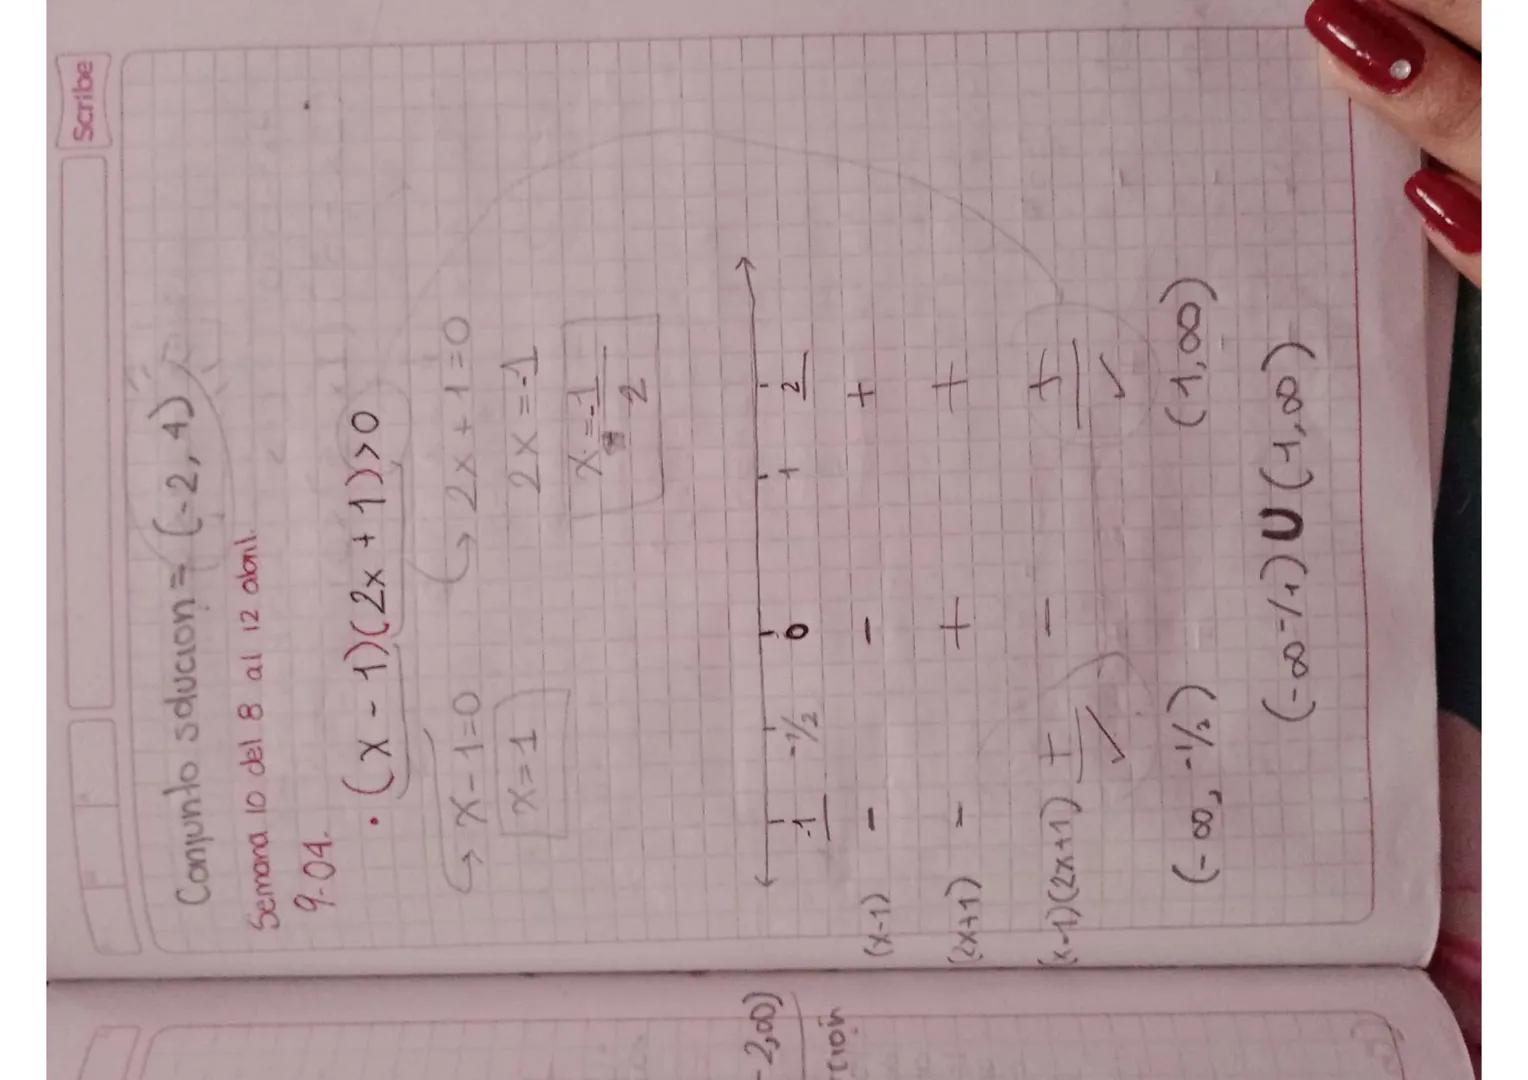 Scribe
Conjunto solucion = (-2, 4)
Semana 10 del 8 al 12 abril.
9-04.
• (x - 1)(2x + 1) > 0
x - 1 = 0
2x + 1 = 0
x = 1
2x = -1
x = -1/2
-1 -1/2 0 1 2
(x-1) - - +
(2x+1) - + +
(x-1)(2x+1) + - +
✓ ✓
(-∞, -1/2) (1, ∞)
(-∞ -1/1) U (1, ∞)
-2, ∞)
ción